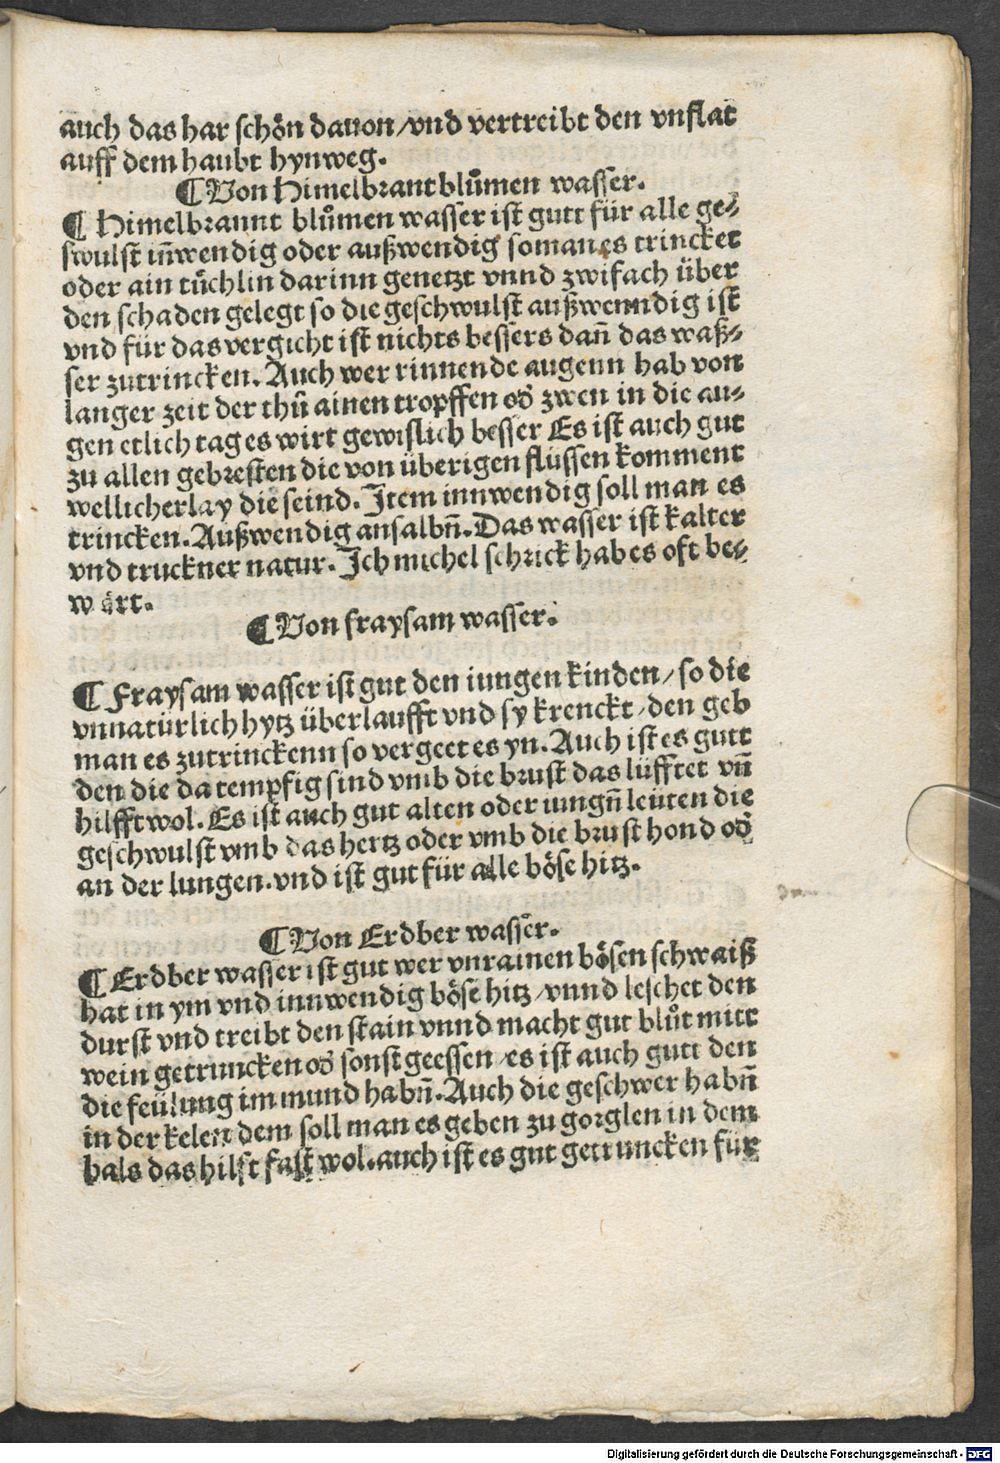 auch das har schön dauon/vnd vertreibt den vnflat
auff dem haubt hynweg.
¶ Von Himelbrant blůmen wasser.
¶ Himelbrannt blůmen wasser ist gutt für alle ge⸗
swulst iñwendig oder außwendig so man es trincket
oder ain tůchlin darinn genetzt vnnd zwifach über
den schaden gelegt so die geschwulst außwenndig ist
vnd für das vergicht ist nichts bessers dañ das waß⸗
ser zutrincken. Auch wer rinnende augenn hab von
langer zeit der thů ainen tropffen oď zwen in die au⸗
gen etlich tag es wirt gewislich besser Es ist auch gut
zu allen gebresten die von überigen flüssen komment
wellicherlay die seind. Item innwendig soll man es
trincken. Außwendig ansalbñ. Das wasser ist kalter
vnd truckner natur. Ich michel schrick hab es oft be⸗
wärt.
¶ Von fraysam wasser.
¶ Fraysam wasser ist gut den iungen kinden/so die
vnnatürlich hytz überlaufft vnd sy krenckt/den geb
man es zutrinckenn so vergeet es yn. Auch ist es gutt
den die da tempfig sind vmb die brust das lüfftet vñ
hilfft wol. Es ist auch gut alten oder iungñ leüten die
geschwulst vmb das hertz oder vmb die brust hond oď
an der lungen. vnd ist gut für alle böse hitz.
¶ Von Erdber wasser.
¶ Erdber wasser ist gut wer vnrainen bösen schwaiß
hat in ym vnd innwendig böse hitz/vnnd leschet den
durst vnd treibt den stain vnnd macht gut blůt mitt
wein getruncken oď sonst geessen/es ist auch gutt den
die feülung im mund habñ. Auch die geschwer habñ
in der kelen dem soll man es geben zu gorglen in dem
hals das hilft fast wol. auch ist es gut getruncken für
Digitalisierung gefördert durch die Deutsche Forschungsgemeinschaft - DFG